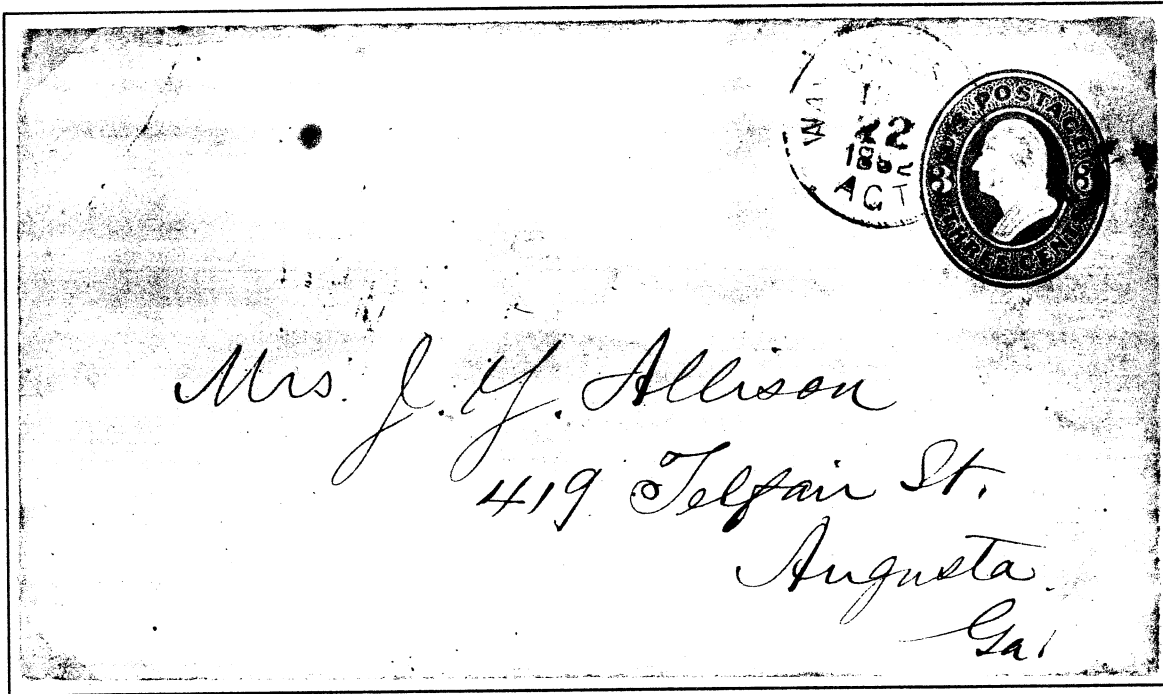 22
188
U.S. POSTAGE
3 3
THREE CENTS
Mrs. J. Y. Allison
419 Telfair St.
Augusta.
Ga.